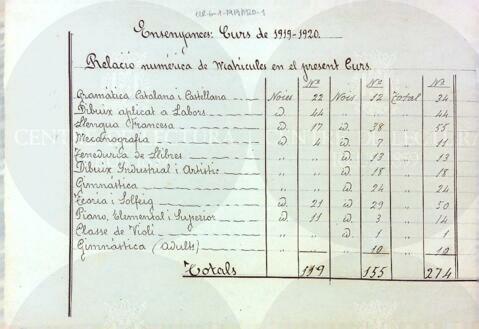 Ensenyances: Curs de 1919-1920.
Relació numérica de Matrícules en el present Curs.
Nº Nº Nº
Gramática Catalana i Castellana Noies 22 Nois 12 Total 34
Dibuix aplicat a Labors id. 44 " " " 44
Llengua Francesa id. 17 id. 38 " 55
Mecanografía id. 4 id. 7 " 11
Teneduria de Llibres " " id. 13 " 13
Dibuix Industrial i Artístic " " id. 18 " 18
Gimnástica " " id. 24 " 24
Teoria i Solfeig id. 21 id. 29 " 50
Piano, Elemental i Superior id. 11 id. 3 " 14
Classe de Violí " " id. 1 " 1
Gimnástica (adults) " " " 10 " 10
Totals 119 155 274